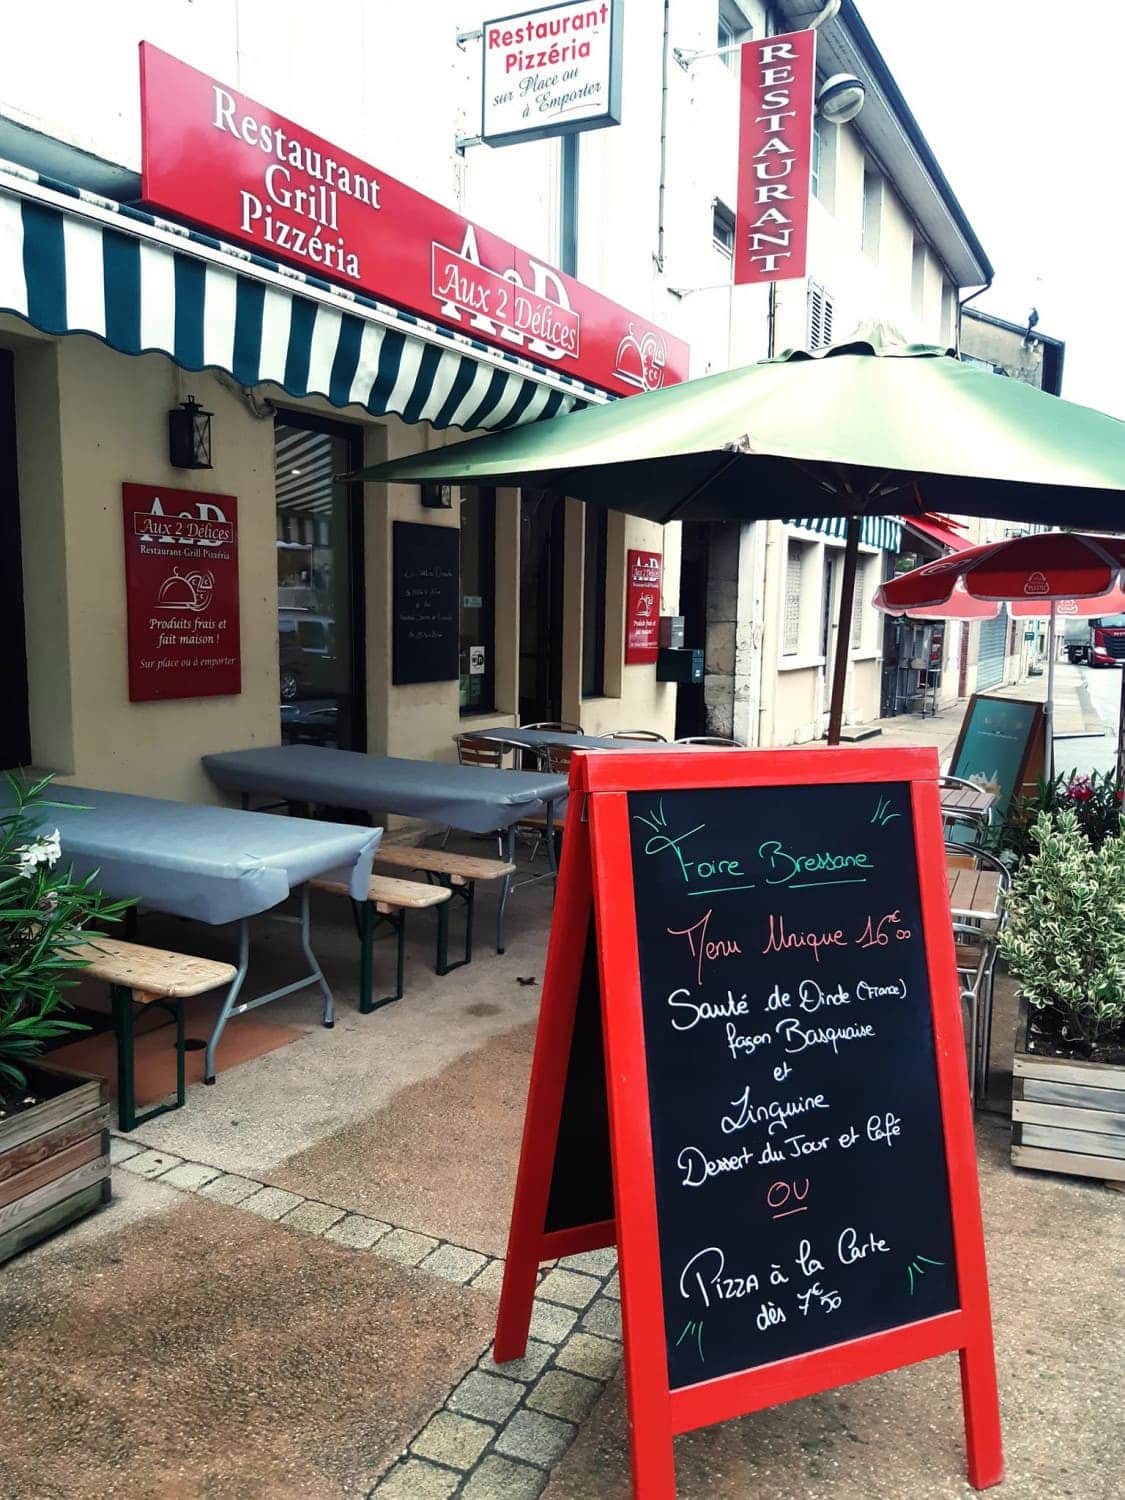 Restaurant
Pizzéria
sur Place ou
à Emporter
RESTAURANT
Restaurant
Grill
Pizzéria
A2D
Aux 2 Délices
A2D
Aux 2 Délices
Restaurant-Grill-Pizzéria
Produits frais et
fait maison !
Sur place ou à emporter
Aux 2 Délices
Restaurant-Grill-Pizzéria
Produits frais et
fait maison !
Foire Bressane
Menu Unique 16€00
Sauté de Dinde (France)
façon Basquaise
et
Linguine
Dessert du Jour et Café
OU
PIZZA à la Carte
dès 7€50